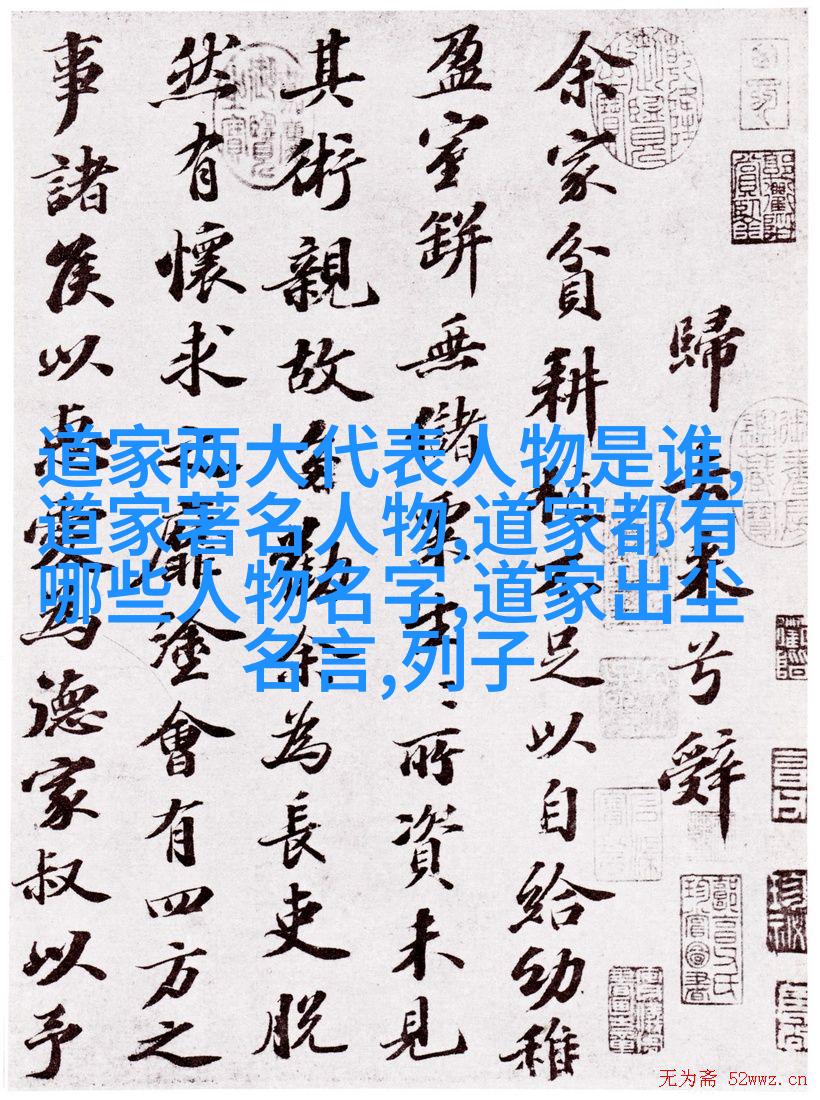 歸去来兮辭
余家貧耕植不足以自給幼稚
盈室缾無儲粟生〻所資未見
其術親故多勸余為長吏脱
然有懷求之靡塗會有四方之
事諸侯以惠愛為德家叔以予
道家两大代表人物是谁,
道家著名人物,道家都有
哪些人物名字,道家出尘
名言,列子
无为斋 52wwz.cn